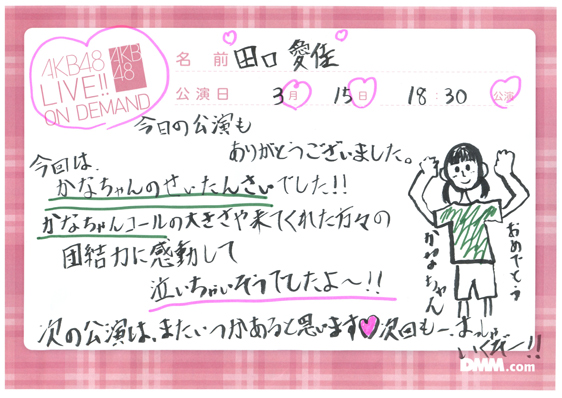 AKB48
LIVE!!
ON DEMAND
AKB
48
名前 田口 愛佳
公演日 3月 15日 18:30 公演
今日の公演も
ありがとうございました。
今回は、
かなちゃんのせいたんさいでした!!
かなちゃんコールの大きさや来てくれた方々の
団結力に感動して
泣いちゃいそうでしたよ〜!!
おめでとう
かなちゃん
次の公演は、またいつかあると思います♥次回もー、まっ
いくぞー!!
DMM.com